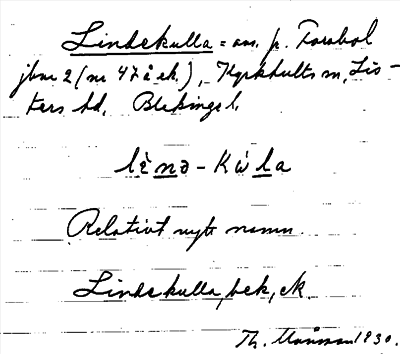 Lindekulla = avs. p. Farabol
jbnr 2 (nr 47 å ek.), Kyrkhults sn, Lis-
ters hd, Blekinge l.
lènə - Kùla
Relativt nytt namn.
Lindekulla, bek, ek.
Th. 1930.